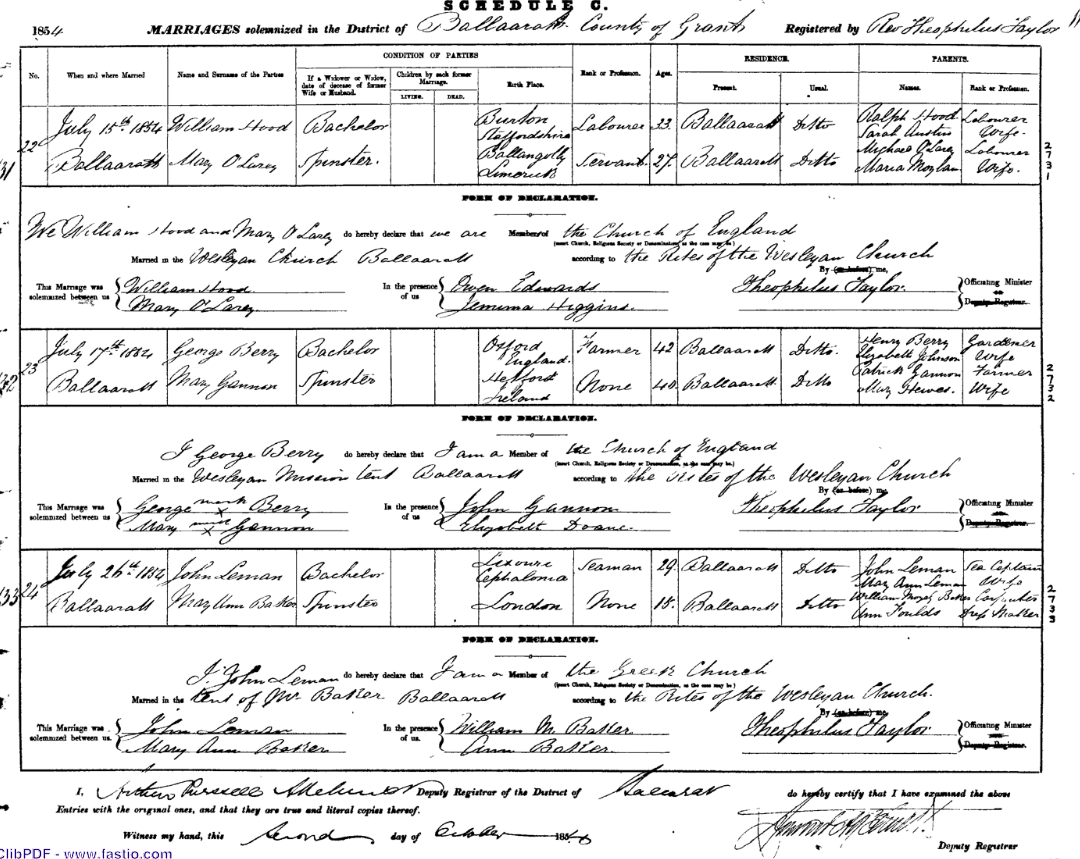 SCHEDULE C.
1854 MARRIAGES solemnized in the District of Ballaarat County of Grant Registered by Rev Theophilus Taylor
No. When and where Married Name and Surname of the Parties CONDITION OF PARTIES Rank or Profession. Ages. RESIDENCE. PARENTS.
If a Widower or Widow, date of decease of former Wife or Husband. Children by each former Marriage. LIVING. DEAD. Birth Place. Present. Usual. Names. Rank or Profession.
22 July 15th 1854 William Hood Bachelor Burton Staffordshire Labourer 33 Ballaarat Ditto Ralph Hood Labourer
Sarah Austin Wife
Ballaarat Mary O'Larey Spinster. Limerick Servant 27 Ballaarat Ditto Michael O'Larey Labourer
Maria Moylan Wife.
2731
FORM OF DECLARATION.
We William Hood and Mary O'Larey do hereby declare that we are Member of the Church of England
(insert Church, Religious Society or Denomination, as the case may be.)
Married in the Wesleyan Church Ballaarat according to the Rites of the Wesleyan Church
By (or before) me,
This Marriage was solemnized between us William Hood Mary O'Larey In the presence of us Owen Edwards Jemima Higgins. Theophilus Taylor. Officiating Minister or Deputy Registrar.
23 July 17th 1854 George Berry Bachelor Oxford England. Farmer 42 Ballaarat Ditto. Henry Berry Gardener
Elizabeth Johnson Wife
Ballaarat Mary Gannon Spinster Ireland None 40. Ballaarat Ditto Patrick Gannon Farmer
Mary Wife
2732
FORM OF DECLARATION.
I George Berry do hereby declare that I am a Member of the Church of England
(insert Church, Religious Society or Denomination, as the case may be.)
Married in the Wesleyan Mission tent Ballaarat according to the Rites of the Wesleyan Church
By (or before) me,
This Marriage was solemnized between us George mark x Berry Mary mark x Gannon In the presence of us John Gannon Elizabeth Doane. Theophilus Taylor Officiating Minister or Deputy Registrar.
24 July 26th 1854 John Leman Bachelor Lixouri Cephalonia Seaman 29. Ballaarat Ditto John Leman Sea Captain
Mary Ann Leman Wife
Ballaarat Mary Ann Baker Spinster London None 18. Ballaarat Ditto William Baker Carpenter
Ann Foulds Dress Maker
2733
FORM OF DECLARATION.
I John Leman do hereby declare that I am a Member of the Greek Church
(insert Church, Religious Society or Denomination, as the case may be.)
Married in the tent of Mr Baker Ballaarat according to the Rites of the Wesleyan Church.
By (or before) me,
This Marriage was solemnized between us. John Leman Mary Ann Baker In the presence of us. William M. Baker Ann Baker Theophilus Taylor Officiating Minister or Deputy Registrar.
I, Arthur Purssell Deputy Registrar of the District of Ballarat do hereby certify that I have examined the above
Entries with the original ones, and that they are true and literal copies thereof.
Witness my hand, this Second day of October 185
Deputy Registrar
ClibPDF - www.fastio.com